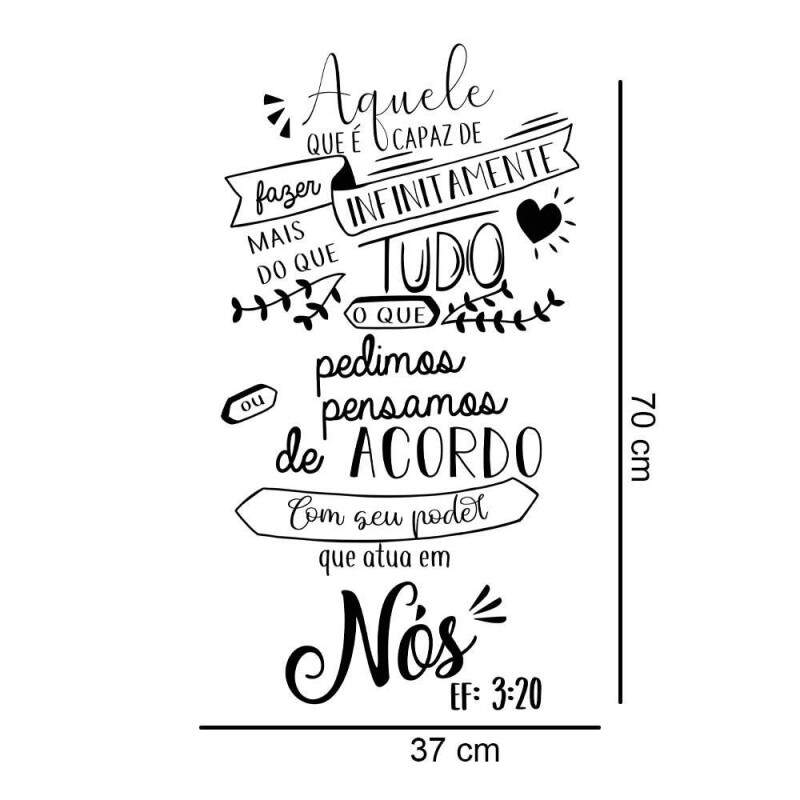 Aquele
QUE É CAPAZ DE
fazer INFINITAMENTE
MAIS
DO QUE TUDO
O QUE
pedimos
ou pensamos
de ACORDO
Com seu poder
que atua em
Nós
EF: 3:20
70 cm
37 cm